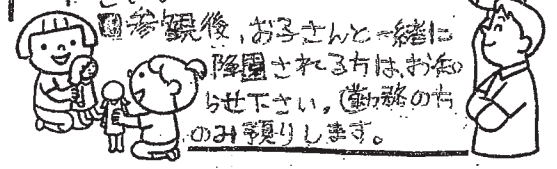 参観後、お子さんと一緒に
降園される方は、お知
らせ下さい。(勤務の方
のみ預りします。